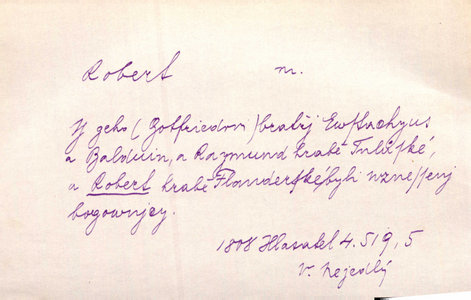 Robert m.
Y geho (Gotfriedow) bratřj Ewstachyus
a Balduin, a Raymund hrabě Tuluské,
a Robert hrabě Flanderské byli wznessenj
bogownjcy.
1808 Hlasatel 4. 519, 5
V. Nejedlý